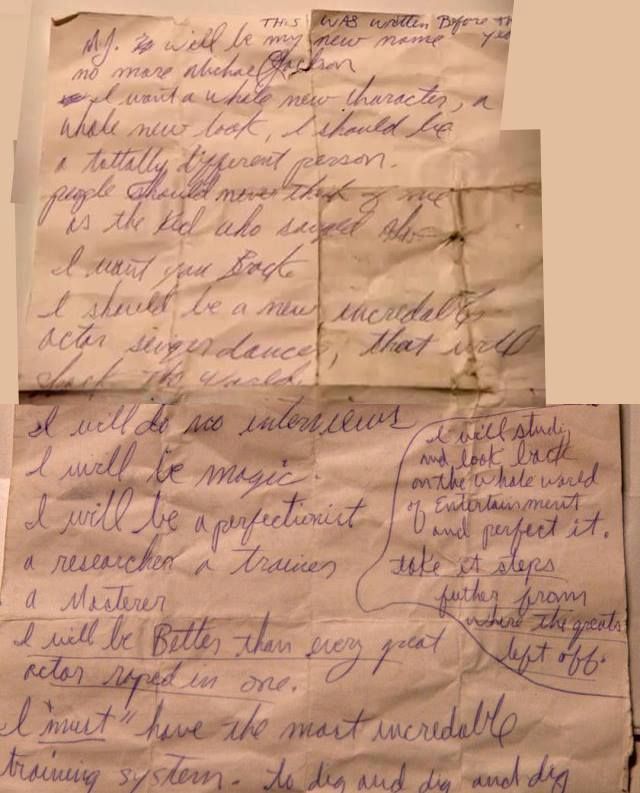 THIS WAS written Before
MJ. will be my new name
no more Michael Jackson
I want a whole new character, a
whole new look, I should be
a tottally different person.
people should never think of me
as the kid who sanged
I want you Back
I should be a new incredable
actor singer dancer, that will
shock the world.
I will do no interviews
I will be magic.
I will be a perfectionist
a researcher a trainer
a Masterer
I will be Better than every great
actor roped in one.
I "must" have the most incredable
training system. to dig and dig and dig
I will study
and look back
on the whole world
of Entertainment
and perfect it.
take it steps
futher from
where the greats
left off.